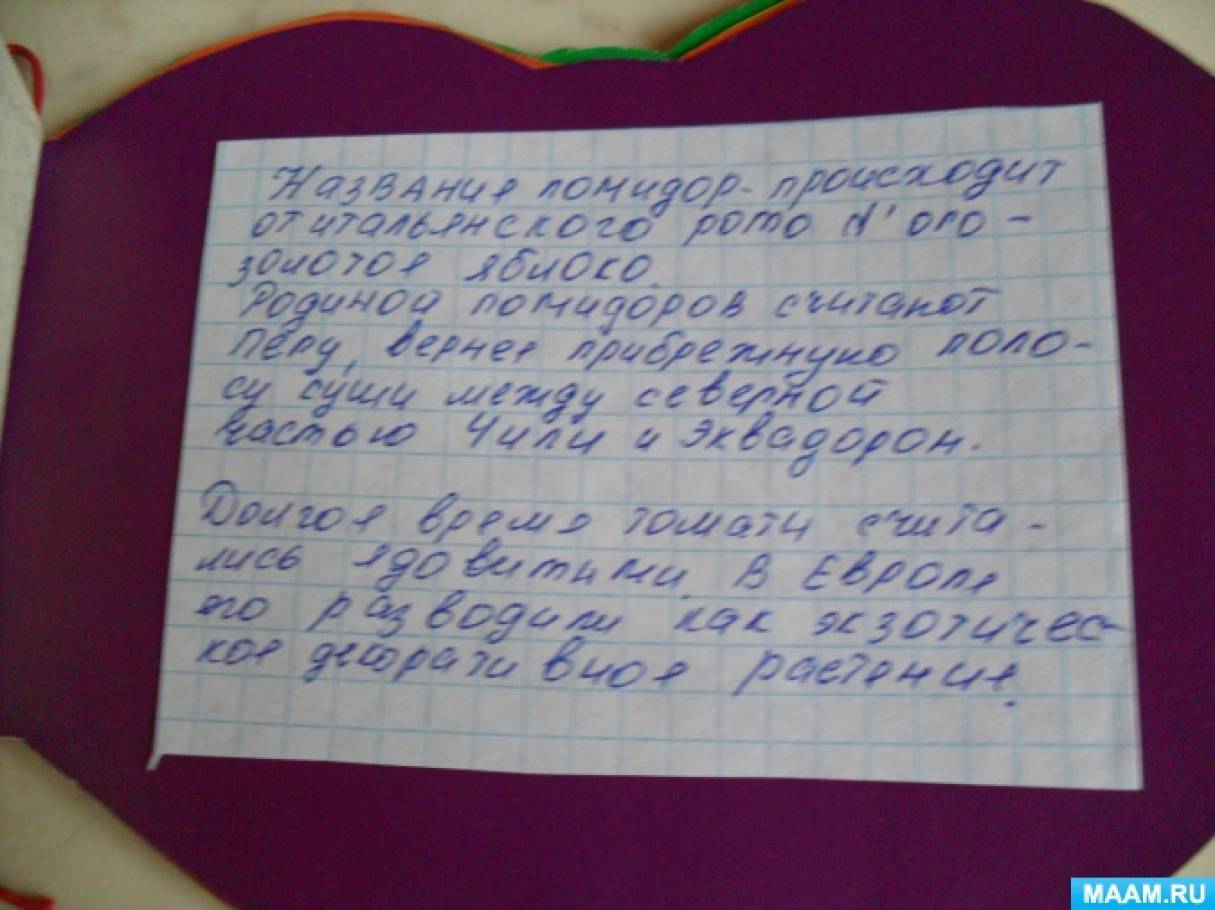 Название помидор- происходит
от итальянского pomo d'oro -
золотое яблоко.
Родиной помидоров считают
Перу, вернее прибрежную поло-
су суши между северной
частью Чили и Эквадором.
Долгое время томаты счита-
лись ядовитыми. В Европе
его разводили как экзотичес-
кое декоративное растение.
MAAM.RU